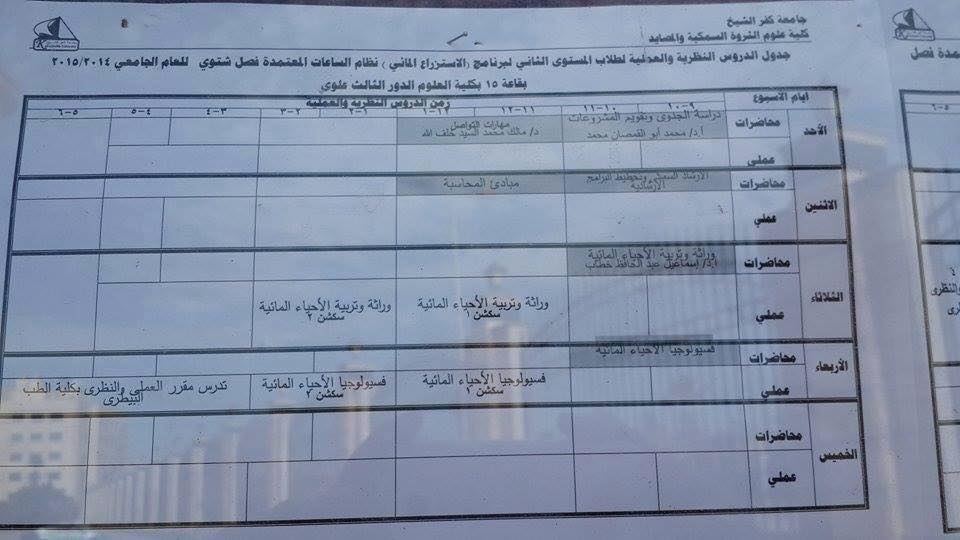 جامعة كفر الشيخ
كلية علوم الثروة السمكية والمصايد
جدول الدروس النظرية والعملية لطلاب المستوى الثاني لبرنامج (الاستزراع المائي) نظام الساعات المعتمدة فصل شتوي للعام الجامعي ٢٠١٥/٢٠١٤
بقاعة ١٥ بكلية العلوم الدور الثالث علوي
ايام الأسبوع
زمن الدروس النظرية والعملية
٩-١٠ ١٠-١١ ١١-١٢ ١٢-١ ١-٢ ٢-٣ ٣-٤ ٤-٥ ٥-٦
الأحد
محاضرات
دراسة الجدوى وتقويم المشروعات
أ.د/ محمد ابو القمصان محمد
مهارات التواصل
د/ مالك محمد السيد خلف الله
عملي
الاثنين
محاضرات
الارشاد السمكي وتخطيط البرامج
الارشادية
مبادئ المحاسبة
عملي
الثلاثاء
محاضرات
وراثة وتربية الأحياء المائية
أ.د/ إسماعيل عبد الحافظ خطاب
عملي
وراثة وتربية الأحياء المائية
سكشن ١
وراثة وتربية الأحياء المائية
سكشن ٢
الأربعاء
محاضرات
فسيولوجيا الأحياء المائية
عملي
فسيولوجيا الأحياء المائية
سكشن ١
فسيولوجيا الأحياء المائية
سكشن ٢
تدرس مقرر العملي والنظرى بكلية الطب
البيطرى
الخميس
محاضرات
عملي